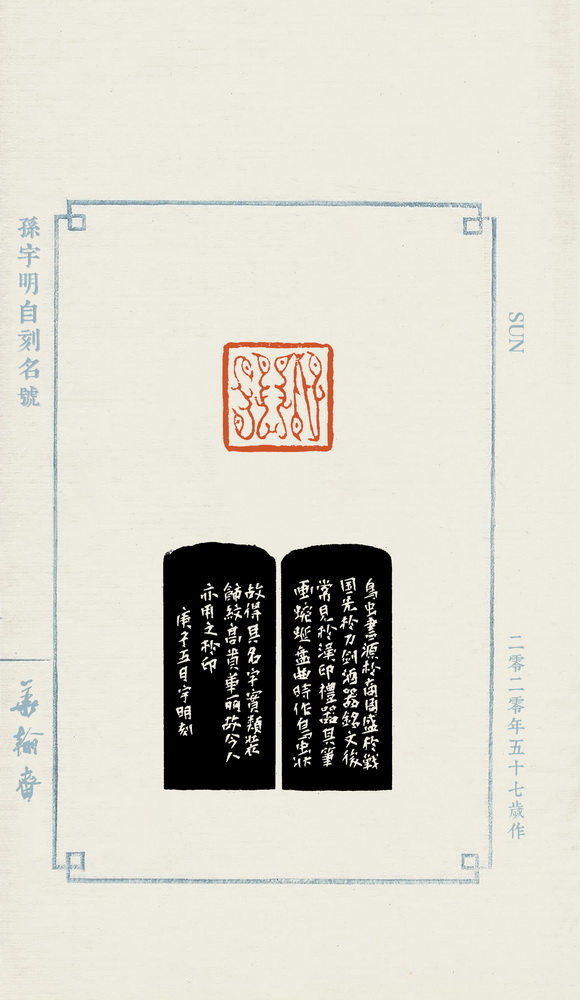 孫宇明自刻名號
SUN
鳥虫書源於商周盛於戰
国先於刀劍酒器銘文後
常見於漢印禮器其筆
画蜿蜒盤曲時作鸟虫状
故得其名字實類裝
飾紋高貴華丽故今人
亦用之於印
庚子五月宇明刻
二零二零年五十七歲作
翰齋